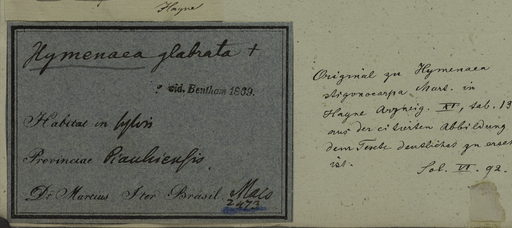 Hayne
Hymenaea glabrata +
? vid. Bentham 1869.
Habitat in sylvis
Provinciae Piauhiensis.
Dr Martius Iter Brasil. Majo
2473
Original zu Hymenaea
stigonocarpa Mart. in
Hayne Arzneig. XI, tab. 13
aus der citirten Abbildung
dem Texte deutlichst zu erseh
ist.
Sol. VI. 92.